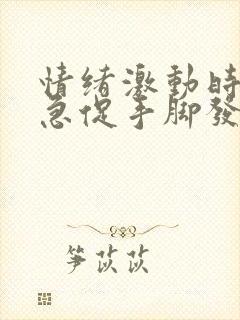 情绪激動時
急促手脚發
笋苡苡